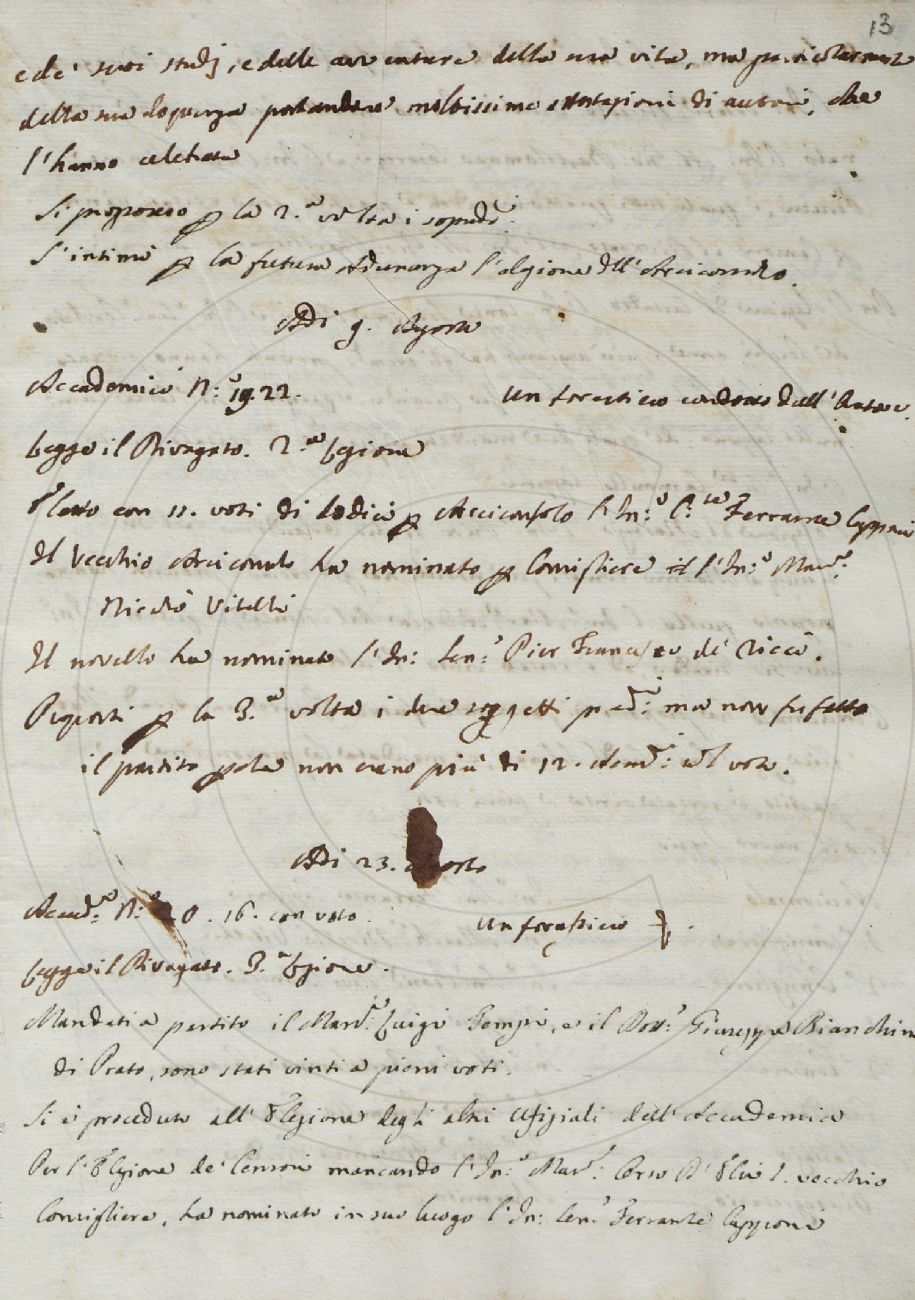 13
e de' suoi studj, e delle avventure della sua vita, ma particolarmente
della sua eloquenza portandone moltissime attestazioni di autori, che
l'hanno celebrato
Si proposero p la 2.a volta i sopradi.
S'intimò p la futura Adunanza l'elezione dll' Arciconsolo.
Adi 9. Agosto
Accademici N.o 19. 22. Un forestiero condotto dall' Autore.
Legge il Rivogato. 2.a Lezione
Eletto con 11. voti di dodici p Arciconsolo l'In.o C.re Ferrante Capponi
Il Vecchio Arciconsolo ha nominato p Consigliere il l'In.o Mar.
Niccolò Vitelli
Il novello ha nominato l'In: Sen.r Pier Francesco de' Ricci.
Proposti p la 3.a volta i due soggetti pred.i ma non fu fatto
il partito p che non erano più di 12. Acad.i col voto.
Adi 23. Agosto
Accad.i N.o 20. 16. con voto. Un forestiero
Legge il Rivogato. 3.a Lezione.
Mandati a partito il Mar. Luigi Tempi, e il Dott.r Giuseppe Bianchini
di Prato, sono stati vinti a pieni voti.
Si è proceduto all' Elezione degli altri Ufiziali dell' Accademia
Per l'Elezione de' Censori mancando l'In.o Mar. Corso vecchio
Consigliere, ha nominato in suo luogo l'In: Sen.r Ferrante Capponi